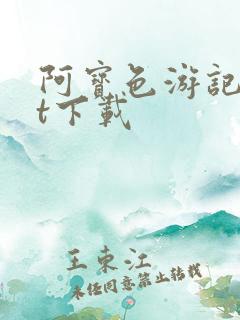 阿宝色游記
t下載
王東江
未经同意禁止转载